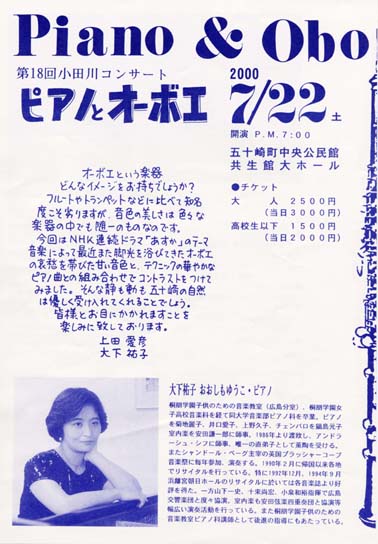 Piano & Obo
第18回小田川コンサート
ピアノとオーボエ
2000
7/22土
開演 P.M.7:00
五十崎町中央公民館
共生館大ホール
●チケット
大 人 2500円
(当日3000円)
高校生以下 1500円
(当日2000円)
オーボエという楽器
どんなイメージをお持ちでしょうか?
フルートやトランペットなどに比べて知名
度こそ劣りますが、音色の美しさは色々な
楽器の中でも随一のものなのです。
今回はNHK連続ドラマ「あすか」のテーマ
音楽によって最近また脚光を浴びてきたオーボエ
の哀愁を帯びた甘い音色と、テクニックの華やかな
ピアノ曲との組み合わせでコントラストをつけて
みました。そんな静も動も五十崎の自然
は優しく受け入れてくれることでしょう。
皆様とお目にかかれますことを
楽しみに致しております。
上田 愛彦
大下 祐子
大下祐子 おおしもゆうこ・ピアノ
桐朋学園子供のための音楽教室(広島分室)、桐朋学園女
子高校音楽科を経て同大学音楽部ピアノ科を卒業。ピアノ
を菊地麗子、井口愛子、上野久子、チェンバロを鍋島元子
室内楽を安田謙一郎に師事。1986年より渡欧し、アンドラ
ーシュ・シフに師事、唯一の直弟子として薫陶を受ける。
またシャンドール・ベーグ主宰の英国プラッシャーコーブ
音楽祭に毎年参加、演奏する。1990年2月に帰国以来各地
でリサイタルを行っている。特に1992年12月、1994年9月
浜離宮朝日ホールのリサイタルに於いては各音楽誌より好
評を得た。一方山下一史、十束尚宏、小泉和裕指揮で広島
交響楽団と度々協演。室内楽も安田弦楽四重奏団と協演等
幅広い演奏活動を行っている。また桐朋学園子供のための
音楽教室ピアノ科講師として後進の指導にもあたっている。